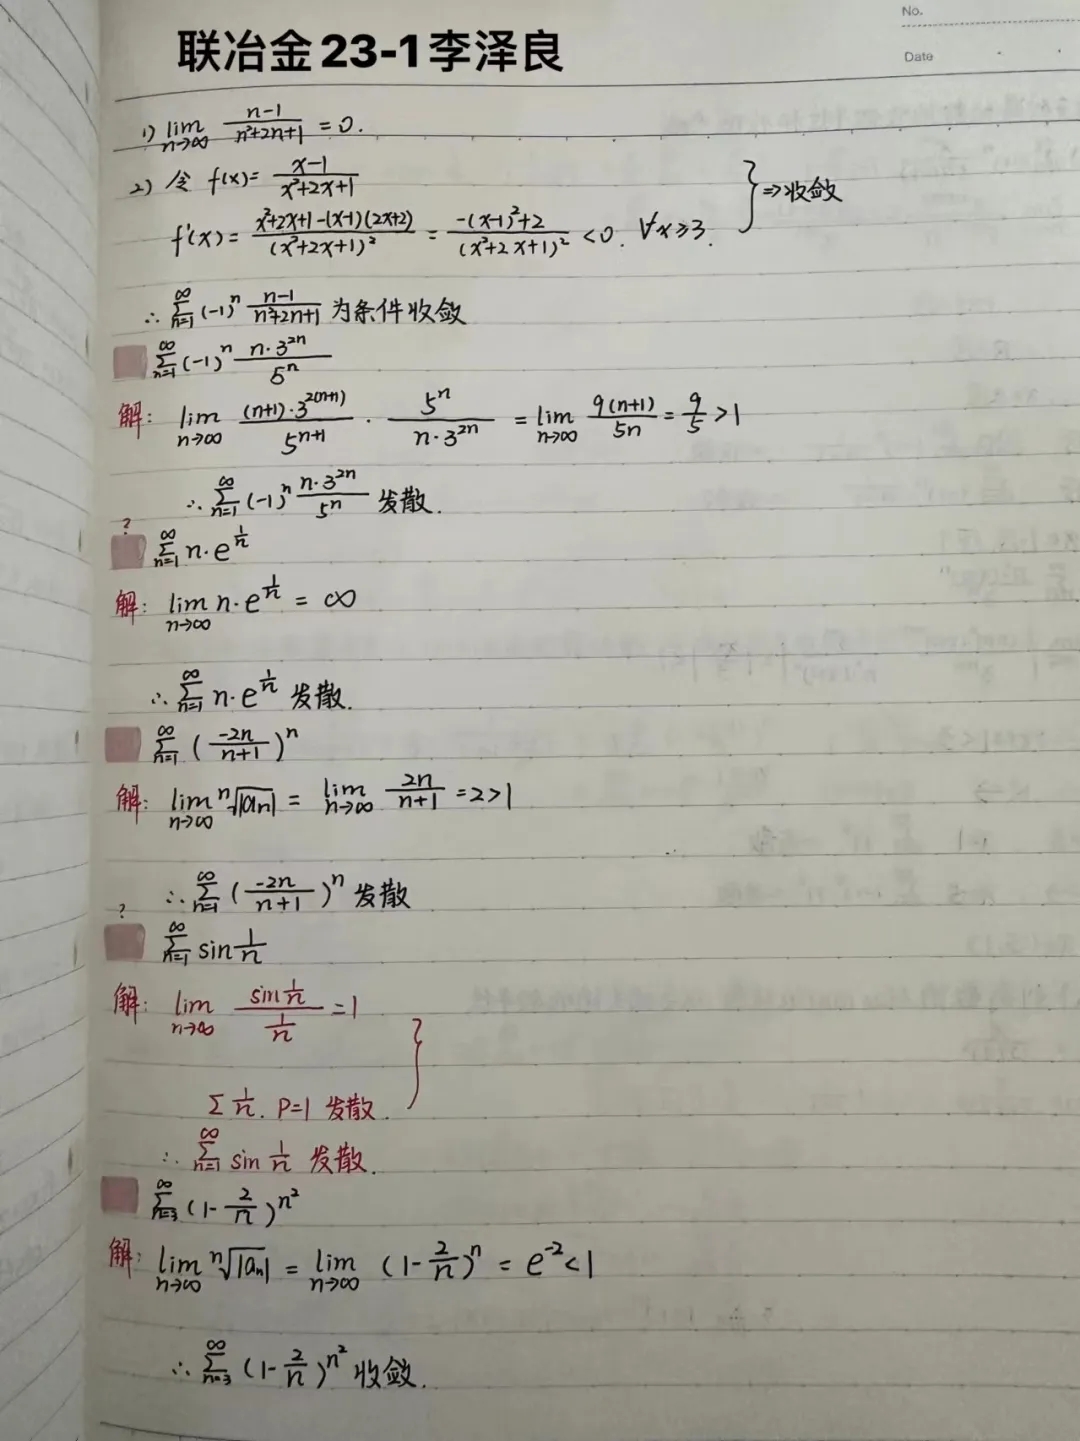 No.
联冶金23-1李泽良
Date
1) lim n→∞ (n-1)/(n²+2n+1) = 0.
2) 令 f(x)= (x-1)/(x²+2x+1)
f'(x)= (x²+2x+1-(x-1)(2x+2))/(x²+2x+1)² = (-(x-1)²+2)/(x²+2x+1)² <0. ∀x≥3. } ⇒收敛
∴ ∞∑n=1 (-1)ⁿ (n-1)/(n²+2n+1) 为条件收敛
∞∑n=1 (-1)ⁿ (n·3²ⁿ)/5ⁿ
解: lim n→∞ ((n+1)·3^(2(n+1)))/5^(n+1) · 5ⁿ/(n·3²ⁿ) = lim n→∞ 9(n+1)/5n = 9/5 >1
∴ ∞∑n=1 (-1)ⁿ (n·3²ⁿ)/5ⁿ 发散.
?
∞∑n=1 n·e^(1/n)
解: lim n→∞ n·e^(1/n) = ∞
∴ ∞∑n=1 n·e^(1/n) 发散.
∞∑n=1 (-2n/(n+1))ⁿ
解: lim n→∞ ⁿ√|an| = lim n→∞ 2n/(n+1) =2>1
∴ ∞∑n=1 (-2n/(n+1))ⁿ 发散
?
∞∑n=1 sin 1/n
解: lim n→∞ (sin 1/n)/(1/n) =1
∑ 1/n. P=1 发散. }
∴ ∞∑n=1 sin 1/n 发散.
∞∑n=3 (1-2/n)^n²
解: lim n→∞ ⁿ√|an| = lim n→∞ (1-2/n)ⁿ = e⁻² <1
∴ ∞∑n=3 (1-2/n)^n² 收敛.